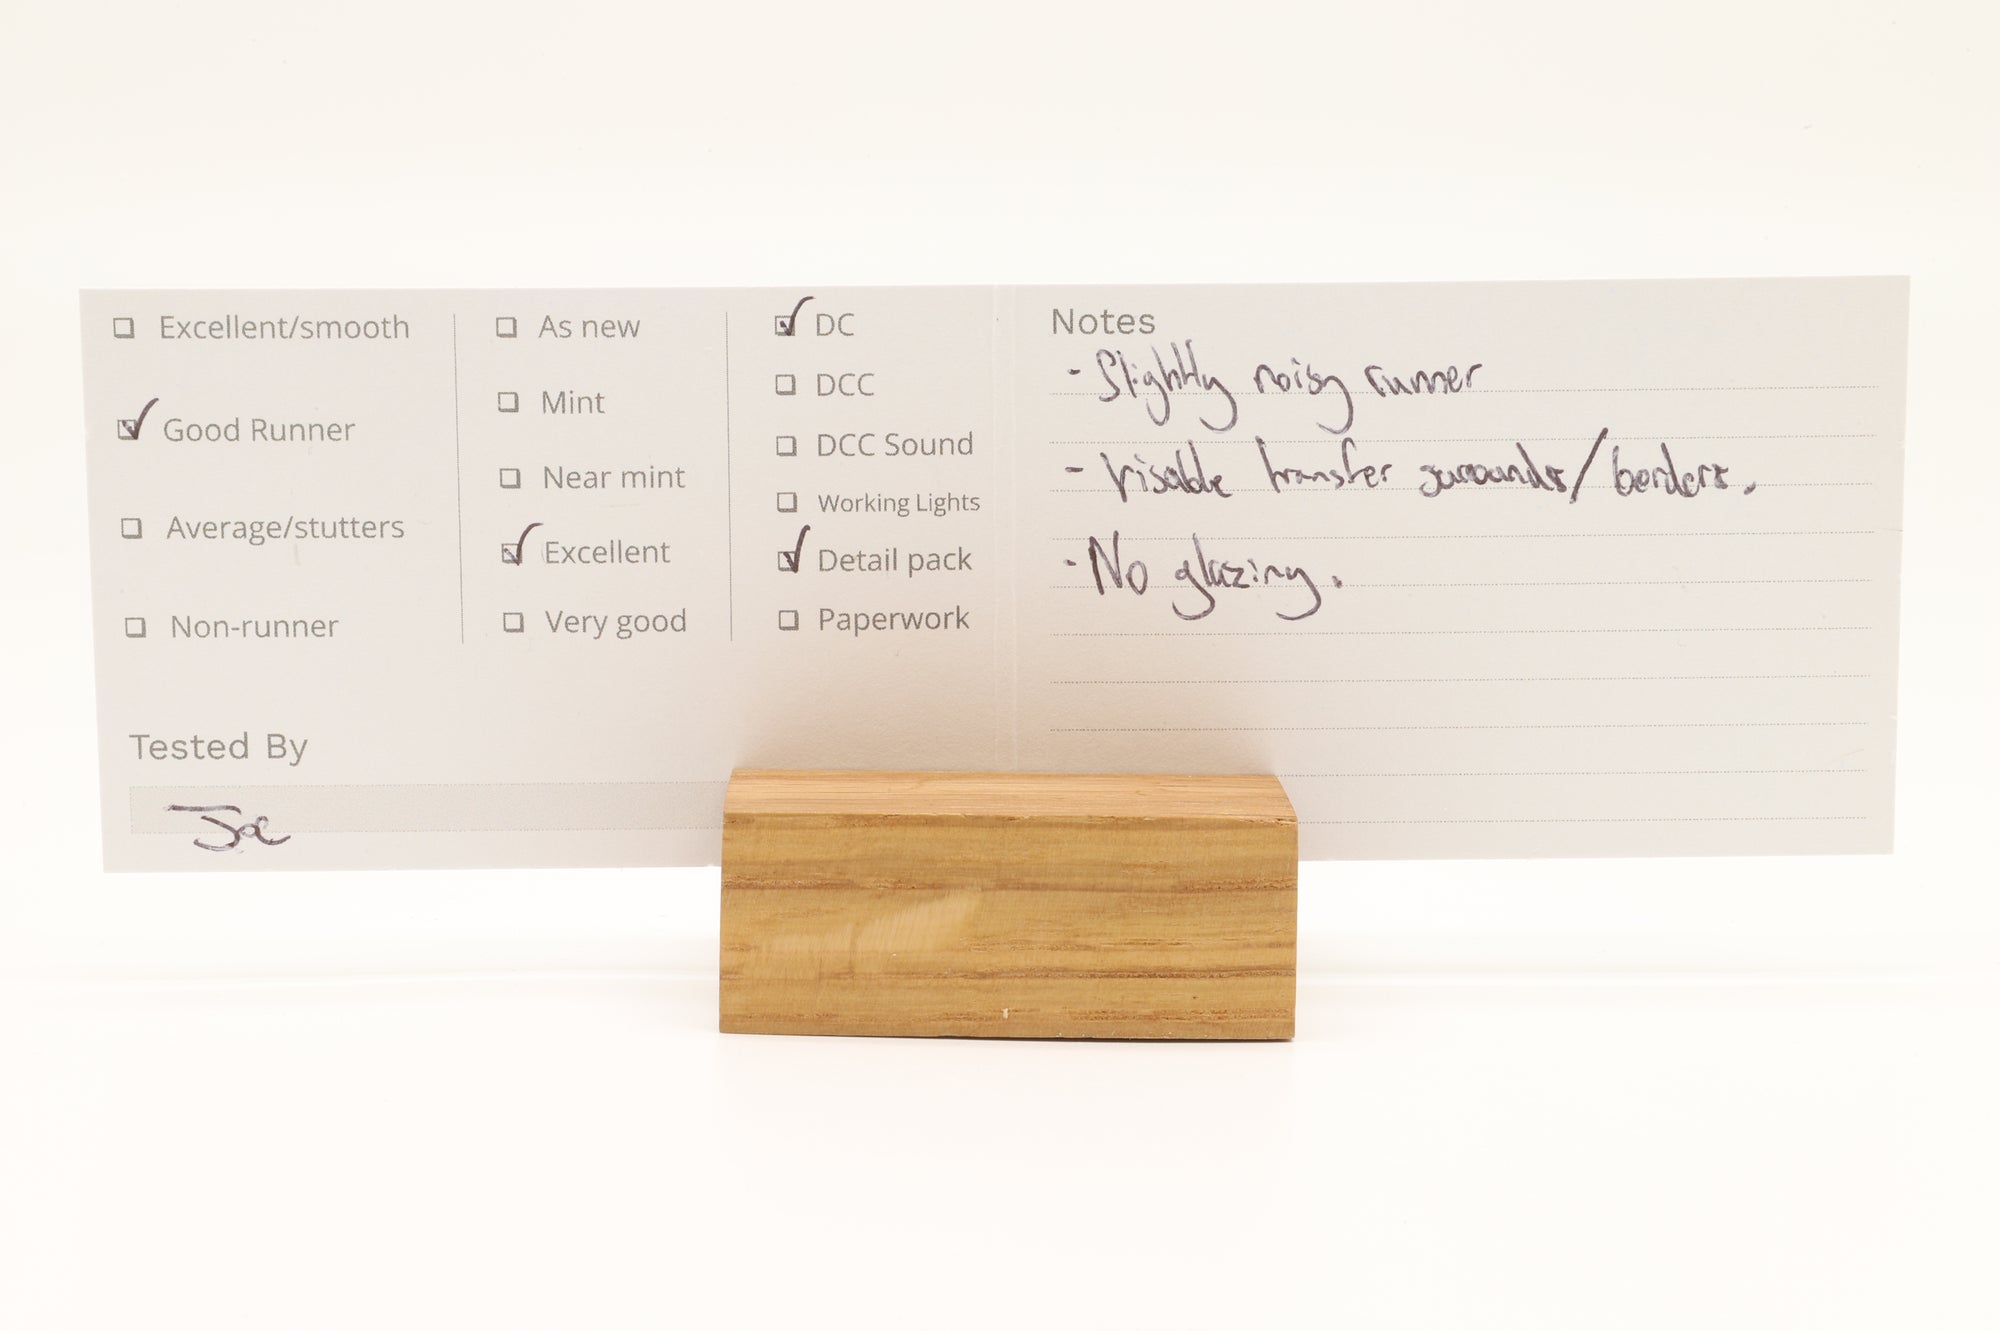 Excellent/smooth
Good Runner
Average/stutters
Non-runner
As new
Mint
Near mint
Excellent
Very good
DC
DCC
DCC Sound
Working Lights
Detail pack
Paperwork
Tested By
Joe
Notes
- Slightly noisy runner
- Visable transfer surounds/borders.
- No glazing.